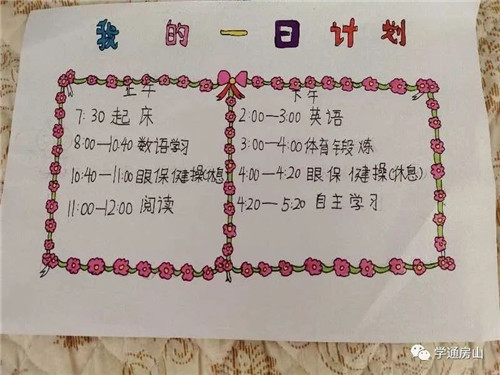 我的一日计划
上午
7:30 起床
8:00—10:40 数语学习
10:40—11:00 眼保健操(休息)
11:00—12:00 阅读
下午
2:00—3:00 英语
3:00—4:00 体育车段炼
4:00—4:20 眼保健操(休息)
4:20—5:20 自主学习
学通房山